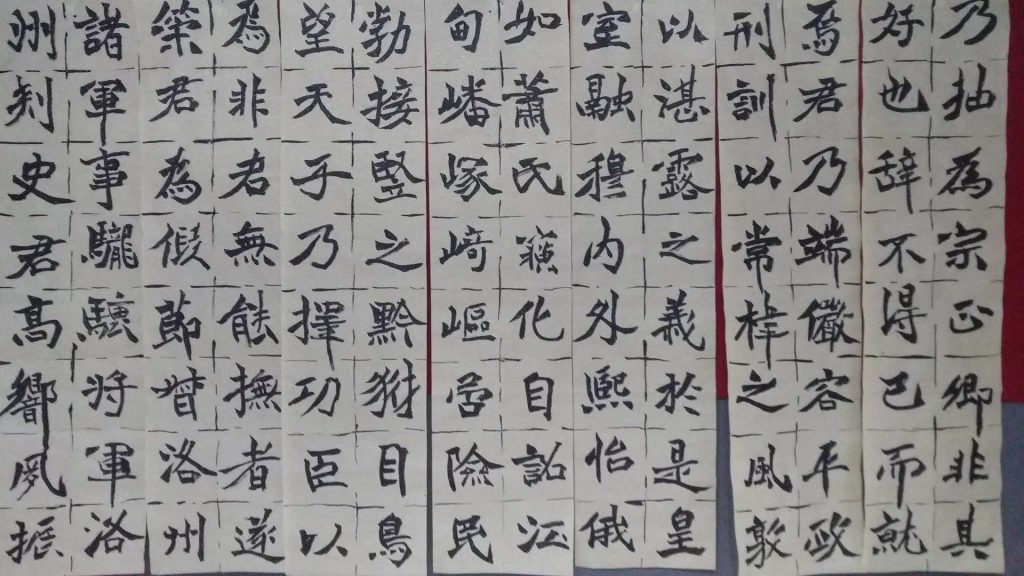 乃抽為宗正卿非其
好也辞不得已而就
焉君乃端儼容平政
刑訓以常棣之風敦
以湛露之義於是皇
室融穆内外熙怡俄
如蕭氏竊化自詒江
甸嶓冢崎嶇營險民
勃接竪之黔豺目鳥
望天子乃擇功臣以
為非君無能撫者遂
策君為假節督洛州
諸軍事龍驤将軍洛
州刺史君高響夙振